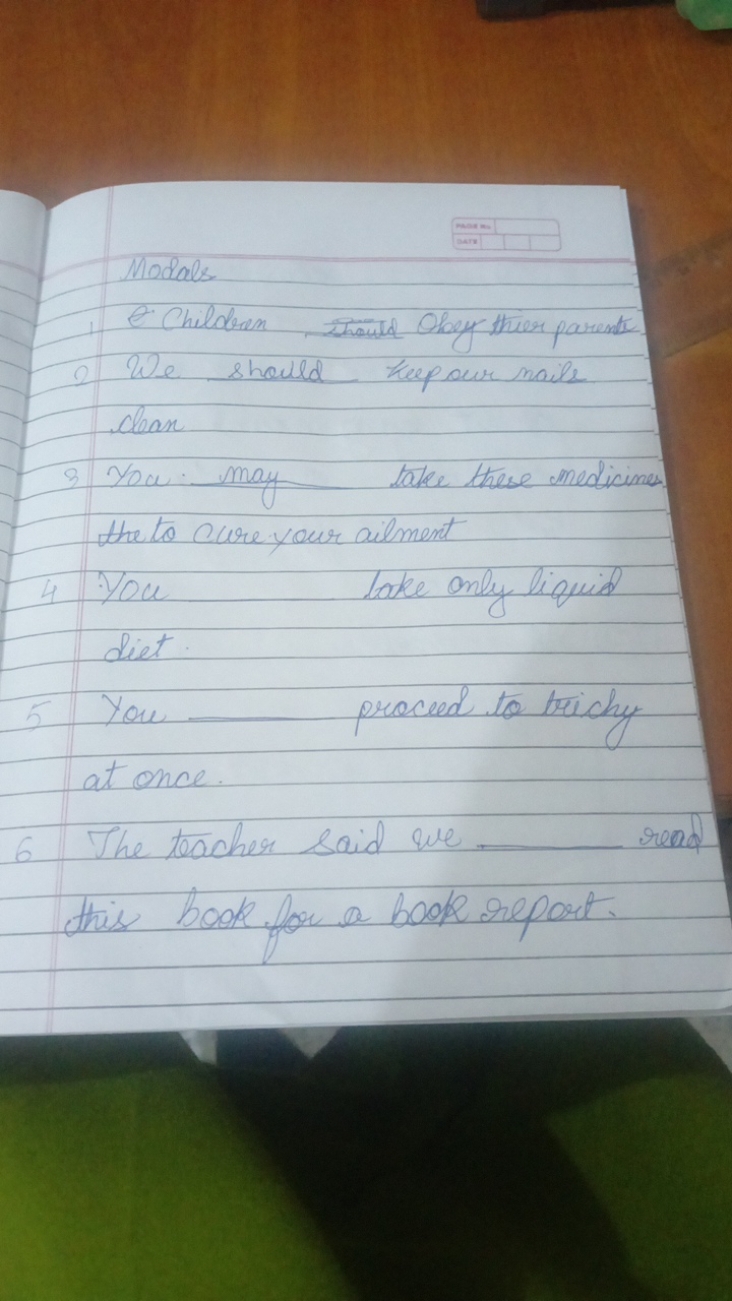 PAGE No.
DATE
Modals
1 Children should Obey thier parents
2 We should keep our nails
clean
3 You may take these medicines
the to cure your ailment
4 You ______ take only liquid
diet.
5 You ______ proceed to trichy
at once.
6 The teacher said we ______ read
this book for a book report.